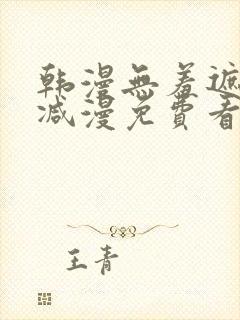 韩漫無羞遮
减漫免費看
王青